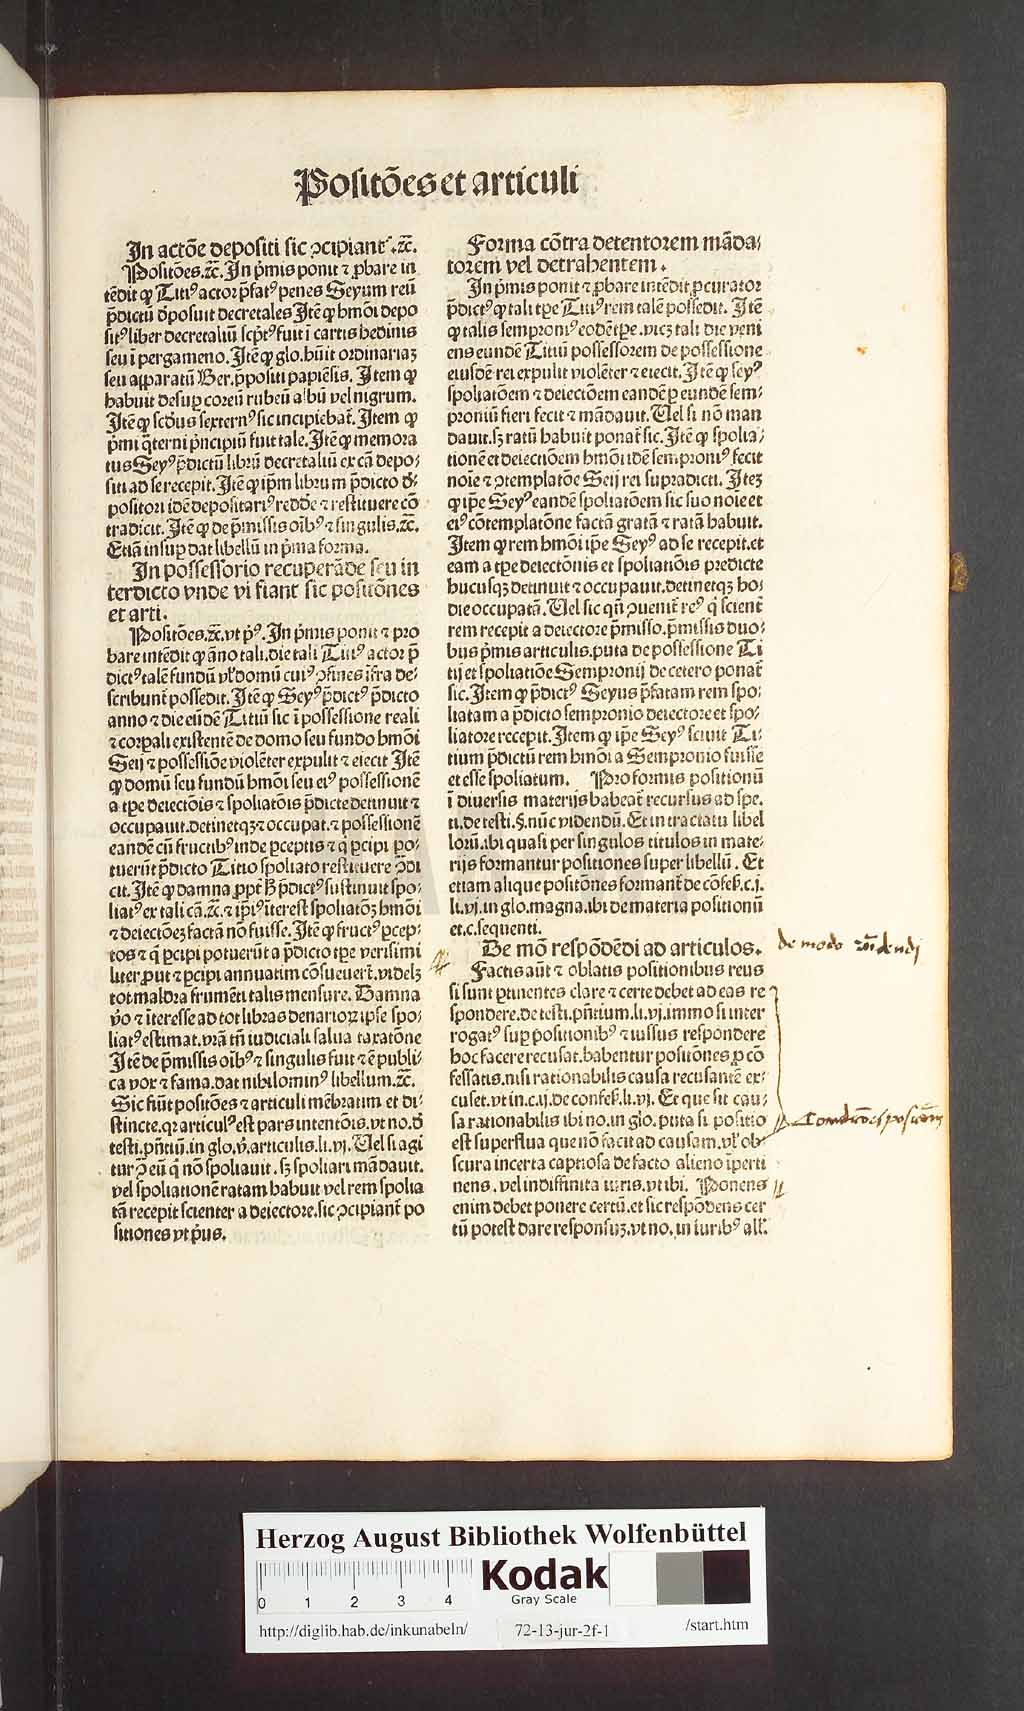 Positiões et articuli
In actiõe depositi sic ꝯcipiant᷑.⁊c̃.
Positiões.⁊c̃. In p̃mis ponit ⁊ ꝓbare in
tẽdit ꝙ Titiꝰ actor p̃fatꝰ penes Seyum reũ
p̃dictũ d̓posuit decretales Itẽ ꝙ hmõi depo
sitꝰ liber decretaliũ scp̃tꝰ fuit ĩ cartis hedinis
seu ĩ pergameno. Itẽ ꝙ glo. hũit ordinariaꝫ
seu apparatũ Ber. p̃positi papiẽsis. Item ꝙ
habuit desuꝑ coreũ rubeũ albũ vel nigrum.
Itẽ ꝙ scd̓us sexternꝰ sic incipiebat᷑. Item ꝙ
p̃mi q̃terni p̃ncipiũ fuit tale. Itẽ ꝙ memora
tus Seyꝰ p̃dictũ librũ decretaliũ ex cã depo⸗
siti ad se recepit. Itẽ ꝙ ip̃m librum p̃dicto d̓⸗
positori idẽ depositariꝰ redde̓ ⁊ restituere cõ
tradicit. Itẽ ꝙ de p̃missis oĩbꝰ ⁊ singulis.⁊c̃.
Etiã insuꝑ dat libellũ in p̃ma forma.
In possessorio recuperãde seu in
terdicto vnde vi fiant sic positiõnes
et arti.
Positiões.⁊c̃. vt pꝰ. In p̃mis ponit ⁊ pro
bare intẽdit ꝙ ãno tali. die tali Titiꝰ actor p̃
dictꝰ talẽ fundũ vl̓ domũ cuiꝰ ꝯfines ĩfra de⸗
scribunt᷑ possedit. Itẽ ꝙ Seyꝰ p̃dictꝰ p̃dicto
anno ⁊ die eũdẽ Titiũ sic ĩ possessione reali
⁊ corꝑali existentẽ de domo seu fundo hmõi
Seij ⁊ possessiõe violẽter expulit ⁊ eiecit Itẽ
ꝙ domũ seu fundũ hmõi seu eiꝰ possessionẽ
a tꝑe deiectiõis ⁊ spoliatiõis p̃dicte detinuit ⁊
occupauit. detinetqꝫ ⁊ occupat. ⁊ possessionẽ
eandẽ cũ fructibꝰ inde ꝑceptis ⁊ q̃ ꝑcipi po⸗
tuerũt p̃dicto Titio spoliato restituere ꝯ̃di
cit. Itẽ ꝙ damna ꝓpt᷑ hͦ p̃dictꝰ sustinuit spo⸗
liatꝰ ex tali cã.⁊c̃. ⁊ ip̃iꝰ ĩterest spoliatiõꝫ hmõi
⁊ deiectiõeꝫ factã nõ fuisse. Itẽ ꝙ fructꝰ ꝑcep⸗
tos ⁊ q̃ ꝑcipi potuerũt a p̃dicto tꝑe verisimi
liter ꝓut ⁊ ꝑcipi annuatim cõsueuer̃t. videlꝫ
tot maldra frumẽti talis mensure. Damna
v̓o ⁊ ĩteresse ad tot libras denarioꝝ ipse spo⸗
liatꝰ estimat. vr̃a tñ iudiciali salua taxatiõne
Itẽ de p̃missis oĩbꝰ ⁊ singulis fuit ⁊ ẽ publi⸗
ca vox ⁊ fama. dat nihilominꝰ libellum.⁊c̃.
Sic fiũt positiões ⁊ articuli mẽbratim et di⸗
stincte. qꝛ articulꝰ est pars intentiõis. vt no. d̓
testi. pñtiũ. in glo. v̓. articulis. li. vj. Vel si agi
tur ꝯ̃ eũ q̃ nõ spoliauit. sꝫ spoliari mãdauit.
vel spoliationẽ ratam habuit vel rem spolia
tã recepit scienter a deiectore. sic ꝯcipiant᷑ po
sitiones vt p̃us.
Forma cõtra detentorem mãda⸗
torem vel detrahentem.
In p̃mis ponit ⁊ ꝓbare intẽdit ꝓcurator
p̃dictꝰ ꝙ tali tꝑe Titiꝰ rem talẽ possedit. Itẽ
ꝙ talis semproniꝰ eodẽ tꝑe. vicꝫ tali die veni
ens eundẽ Titiũ possessorem de possessione
eiusdẽ rei expulit violẽter ⁊ eiecit. Itẽ ꝙ seyꝰ
spoliatiõem ⁊ deiectiõem eandẽ ꝑ eundẽ sem⸗
proniũ fieri fecit ⁊ mãdauit. Vel si nõ man
dauit. sꝫ ratũ habuit ponat᷑ sic. Itẽ ꝙ spolia⸗
tionẽ et deiectiõem hmõi idẽ semproniꝰ fecit
noĩe ⁊ ꝯtemplatiõe Seij rei supradicti. Iteꝫ
ꝙ ip̃e Seyꝰ eandẽ spoliatiõem sic suo noĩe et
eiꝰ cõtemplatiõne factã gratã ⁊ ratã habuit.
Item ꝙ rem hmõi ip̃e Seyꝰ ad se recepit. et
eam a tꝑe deiectiõnis et spoliatiõis predicte
hucusqꝫ detinuit ⁊ occupauit. detinetqꝫ ho⸗
die occupatã. Vel sic qñ ꝯuenit᷑ reꝰ q̃ scient᷑
rem recepit a deiectore p̃misso. p̃missis duo⸗
bus p̃mis articulis. puta de possessione Ti
tij et spoliatiõe Sempronij de cetero ponat᷑
sic. Item ꝙ p̃dictꝰ Seyus p̃fatam rem spo⸗
liatam a p̃dicto sempronio deiectore et spo⸗
liatore recepit. Item ꝙ ip̃e Seyꝰ sciuit Ti⸗
tium p̃dictũ rem hmõi a Sempronio fuisse
et esse spoliatum. Pro formis positionũ
ĩ diuersis materijs habeat᷑ recursus ad spe.
ti. de testi. §. nũc videndũ. Et in tractatu libel
lorũ. ibi quasi per singulos titulos in mate⸗
rijs formantur positiones super libellũ. Et
etiam alique positiõnes formant᷑ de cõfess̓. c.j.
li. vj. in glo. magna. ibi de materia positionũ
et. c. sequenti.
De mõ respõdẽdi ad articulos.
Factis aũt ⁊ oblatis positionibus reus
si sunt ꝑtinentes clare ⁊ certe debet ad eas re
spondere. de testi. pñtium. li. vj. immo si inter
rogatꝰ suꝑ positionibꝰ ⁊ iussus respondere
hoc facere recusat. habentur positiõnes ꝓ cõ
fessatis. nisi rationabilis causa recusantẽ ex⸗
cuset. vt in. c. ij. de confess̓. li. vj. Et que sit cau⸗
sa rationabilis ibi no. in glo. puta si positio
est superflua que nõ facit ad causam. vl̓ ob⸗
scura incerta captiosa de facto alieno ĩperti
nens. vel indiffinita iuris. vt ibi. Ponens
enim debet ponere certũ. et sic respõdens cer
tũ potest dare responsuꝫ. vt no. in iuribꝰ all̓.
de modo rñdendi
Conditiões positiõm
Herzog August Bibliothek Wolfenbüttel
0 1 2 3 4
Kodak
Gray Scale
http://diglib.hab.de/inkunabeln/ 72-13-jur-2f-1 /start.htm